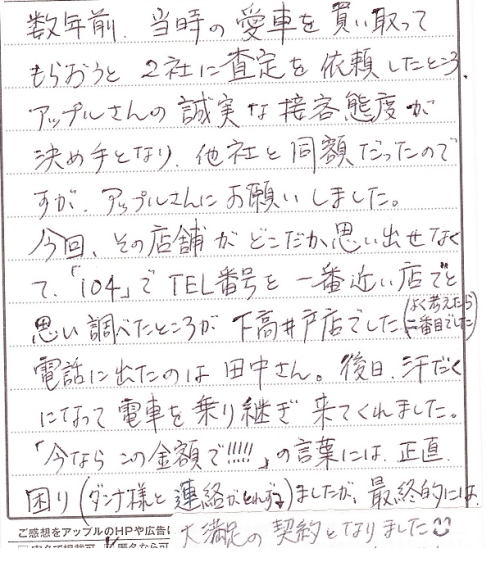 数年前、当時の愛車を買い取って
もらおうと2社に査定を依頼したところ、
アップルさんの誠実な接客態度が
決め手となり、他社と同額だったので
すが、アップルさんにお願いしました。
今回、その店舗がどこだか思い出せなく
て、「104」でTEL番号を一番近い店でと
思い調べたところが下高井戸店でした(よく考えたら
二番目でした)
電話に出たのは田中さん。後日、汗だく
になって電車を乗り継ぎ来てくれました。
「今ならこの金額で!!!!!」の言葉には、正直
困り(ダンナ様と連絡がとれず)ましたが、最終的には、
大満足の契約となりました
ご感想をアップルのHPや広告に